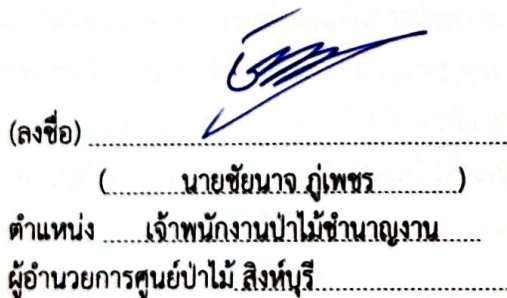 (ลงชื่อ)
( นายชัยนาจ ภู่เพชร )
ตำแหน่ง เจ้าพนักงานป่าไม้ชำนาญงาน
ผู้อำนวยการศูนย์ป่าไม้ สิงห์บุรี